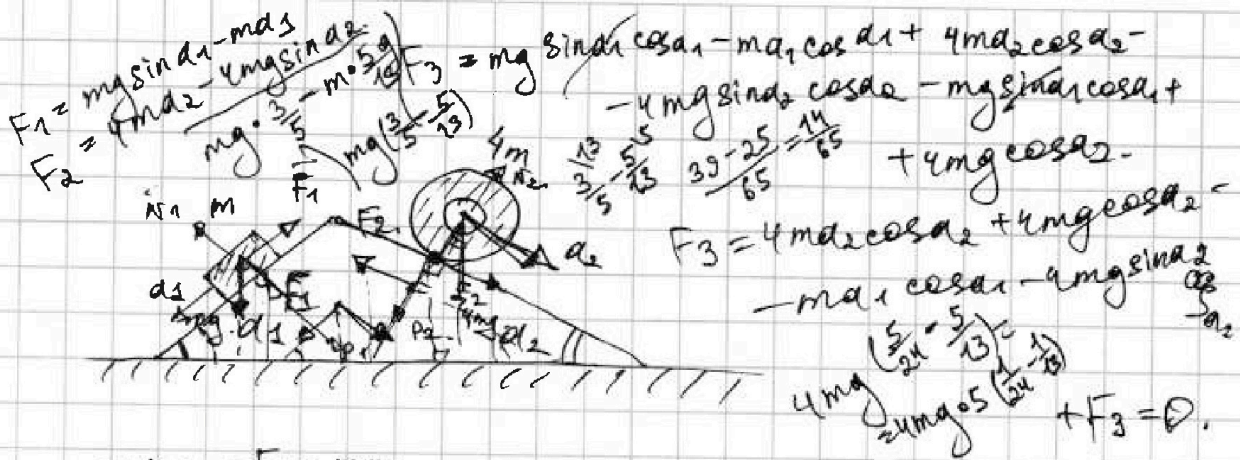 F₁ = mg sin α₁ - ma₁
F₂ = 4ma₂ - 4mg sin α₂
mg · 3/5 - m · 5g/13
mg (3/5 - 5/13)
F₃ = mg sin α₁ cos α₁ - ma₁ cos α₁ + 4ma₂ cos α₂ -
- 4mg sin α₂ cos α₂ - mg sin α₁ cos α₁ +
+ 4mg cos α₂ -
13/3/5 - 5/5/13
39-25/65 = 14/65
F₃ = 4ma₂ cos α₂ + 4mg cos α₂ -
- ma₁ cos α₁ - 4mg sin α₂ cos α₂
4mg (5/24 - 5/13) =
= 4mg · 5 (1/24 - 1/13)
+ F₃ = 0.
N₁ m
F₁
F₂
4m
N₂
a₂
a₁
F₁
mg
α₁
P₁
P₂
F₂
4mg
α₂